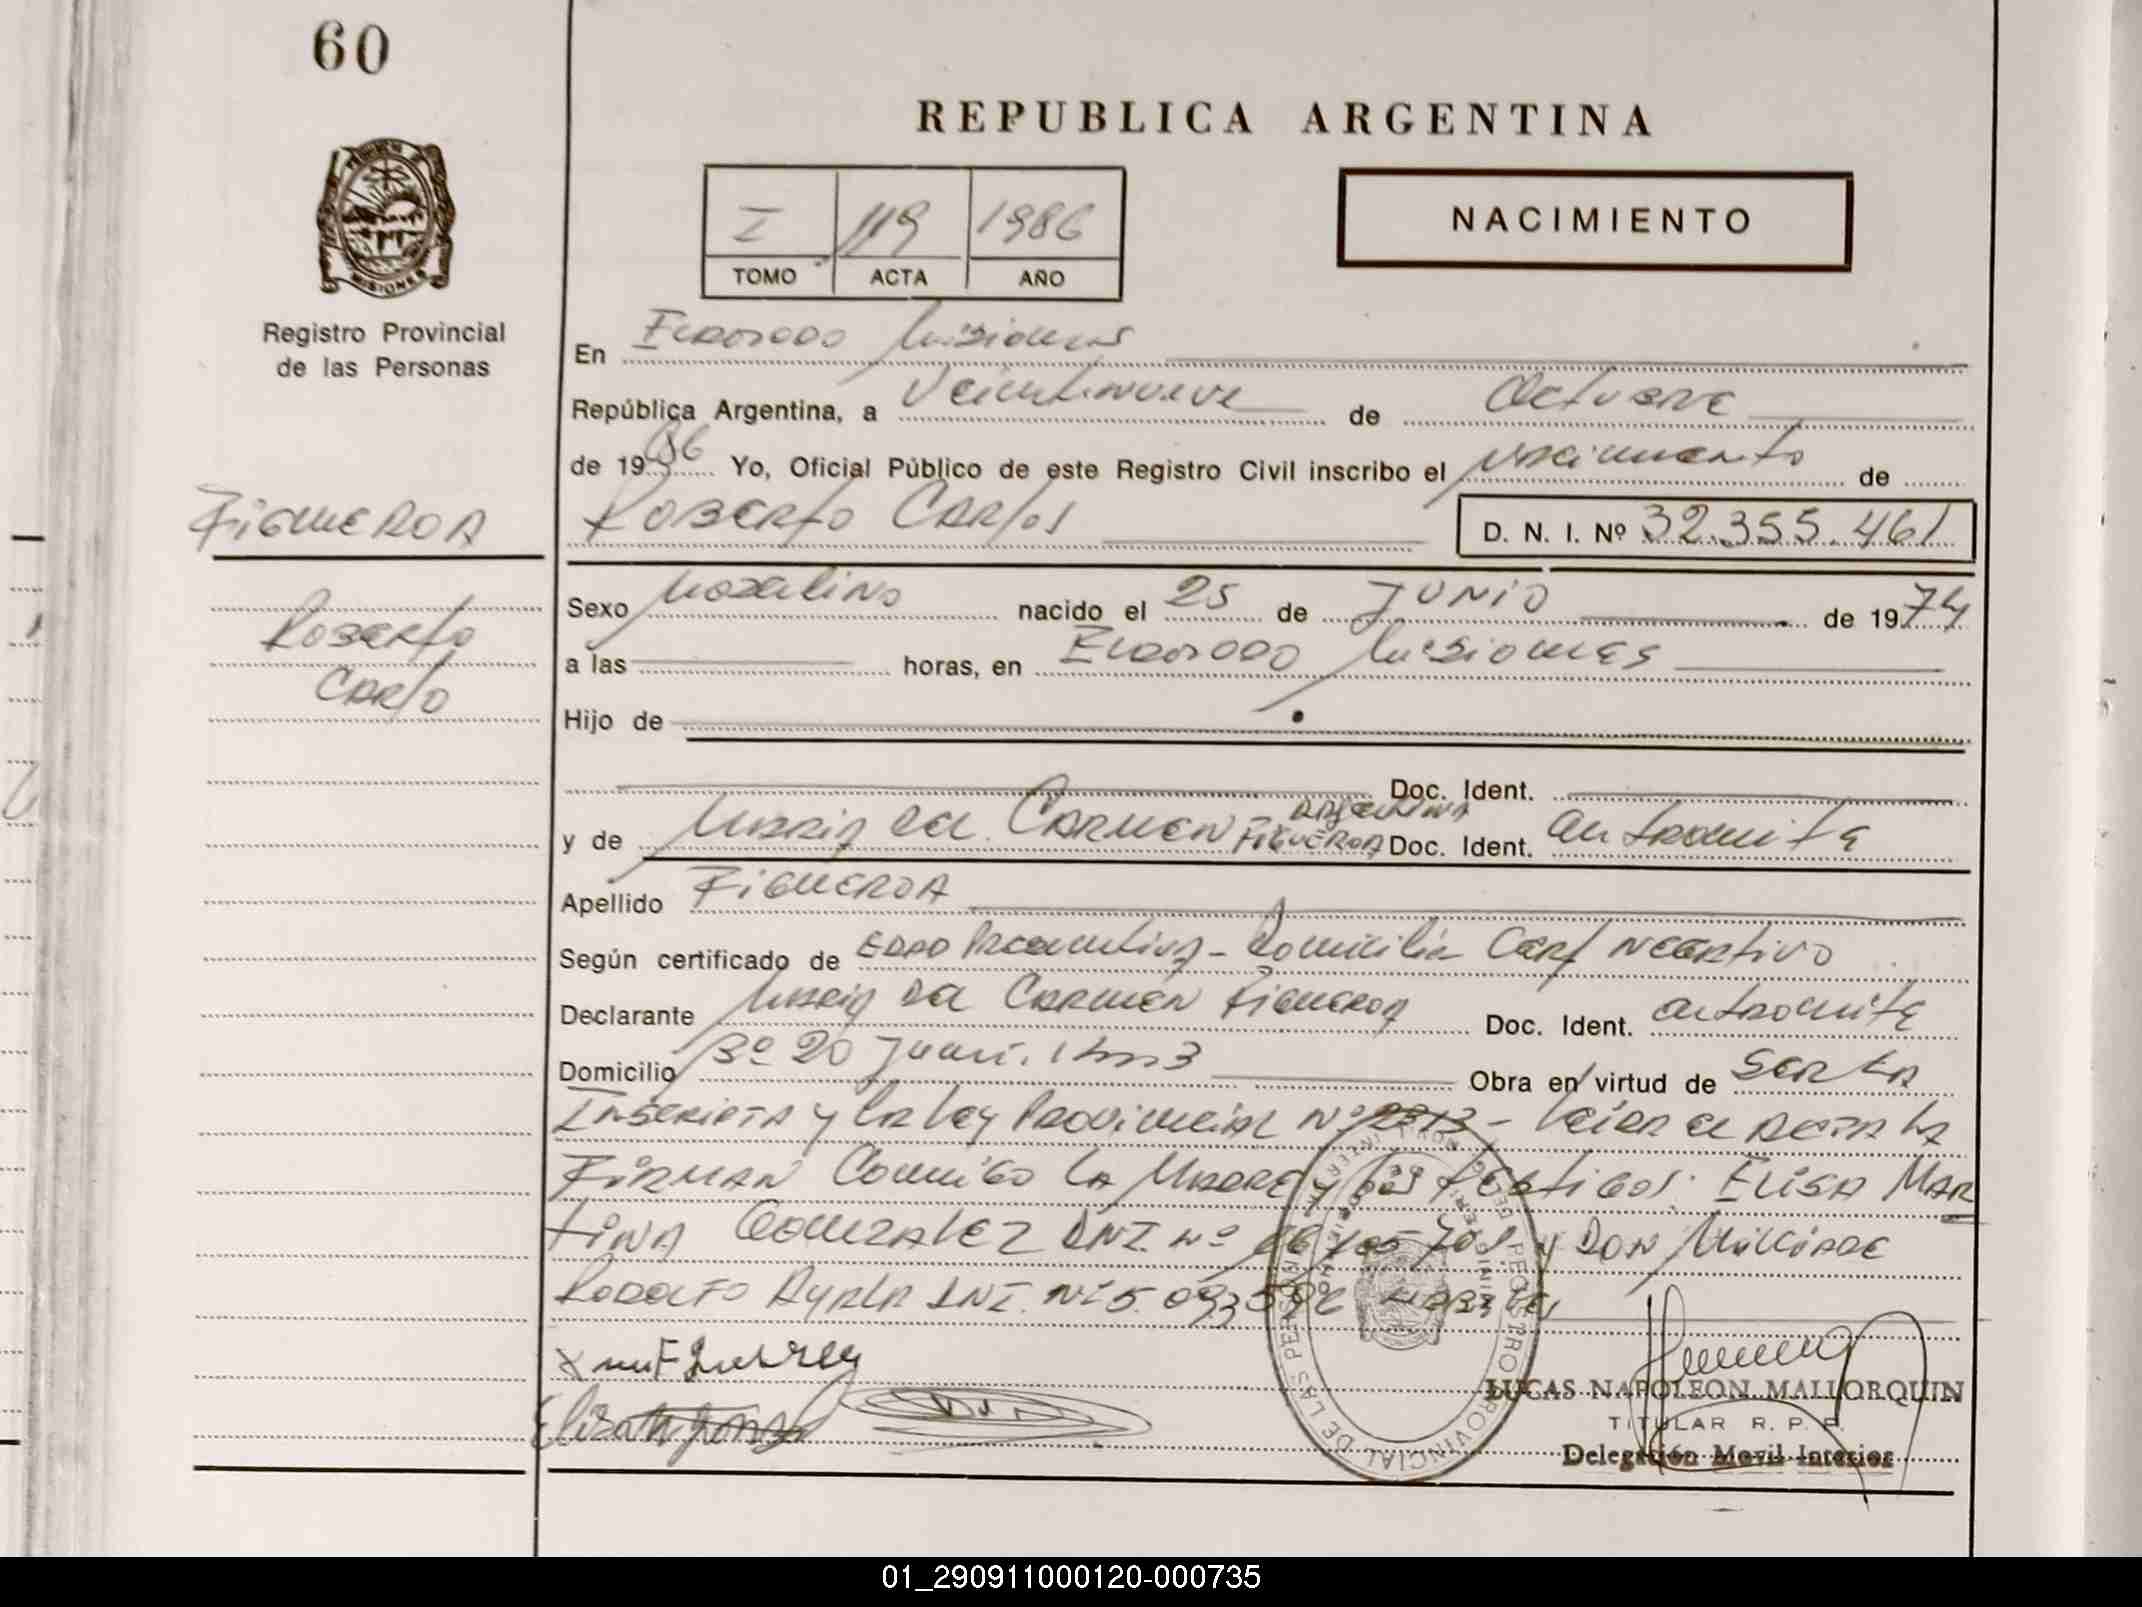 60
REPUBLICA ARGENTINA
I 119 1986
TOMO ACTA AÑO
NACIMIENTO
MISIONES
Registro Provincial
de las Personas
En Eldorado Misiones
República Argentina, a Veintinueve de Octubre
de 1986 Yo, Oficial Público de este Registro Civil inscribo el nacimiento de
FIGUEROA
Roberto Carlos
D. N. I. Nº 32.355.461
Roberto
Carlo
Sexo Masculino nacido el 25 de JUNIO de 1974
a las horas, en Eldorado Misiones
Hijo de
Doc. Ident.
argentina
y de Maria del Carmen FIGUEROA Doc. Ident. en tramite
Apellido FIGUEROA
Según certificado de Edad Presuntiva - Domicilio Cert Negativo
Declarante Maria del Carmen Figueroa Doc. Ident. en tramite
Domicilio Bº 20 Junio Obra en virtud de ser la
Inscripta y la Ley Provincial Nº 2313 - Leida el acta la
Firman Conmigo la Madre y los testigos: Elisa Mar
tina Gonzalez DNI. nº y Don Milciade
Rodolfo Ayala DNI. Nº 5.093.592 habiles
REGISTRO PROVINCIAL DE LAS PERSONAS
LUCAS NAPOLEON MALLORQUIN
TITULAR R. P. P.
Delegación Movil Interior
01_290911000120-000735